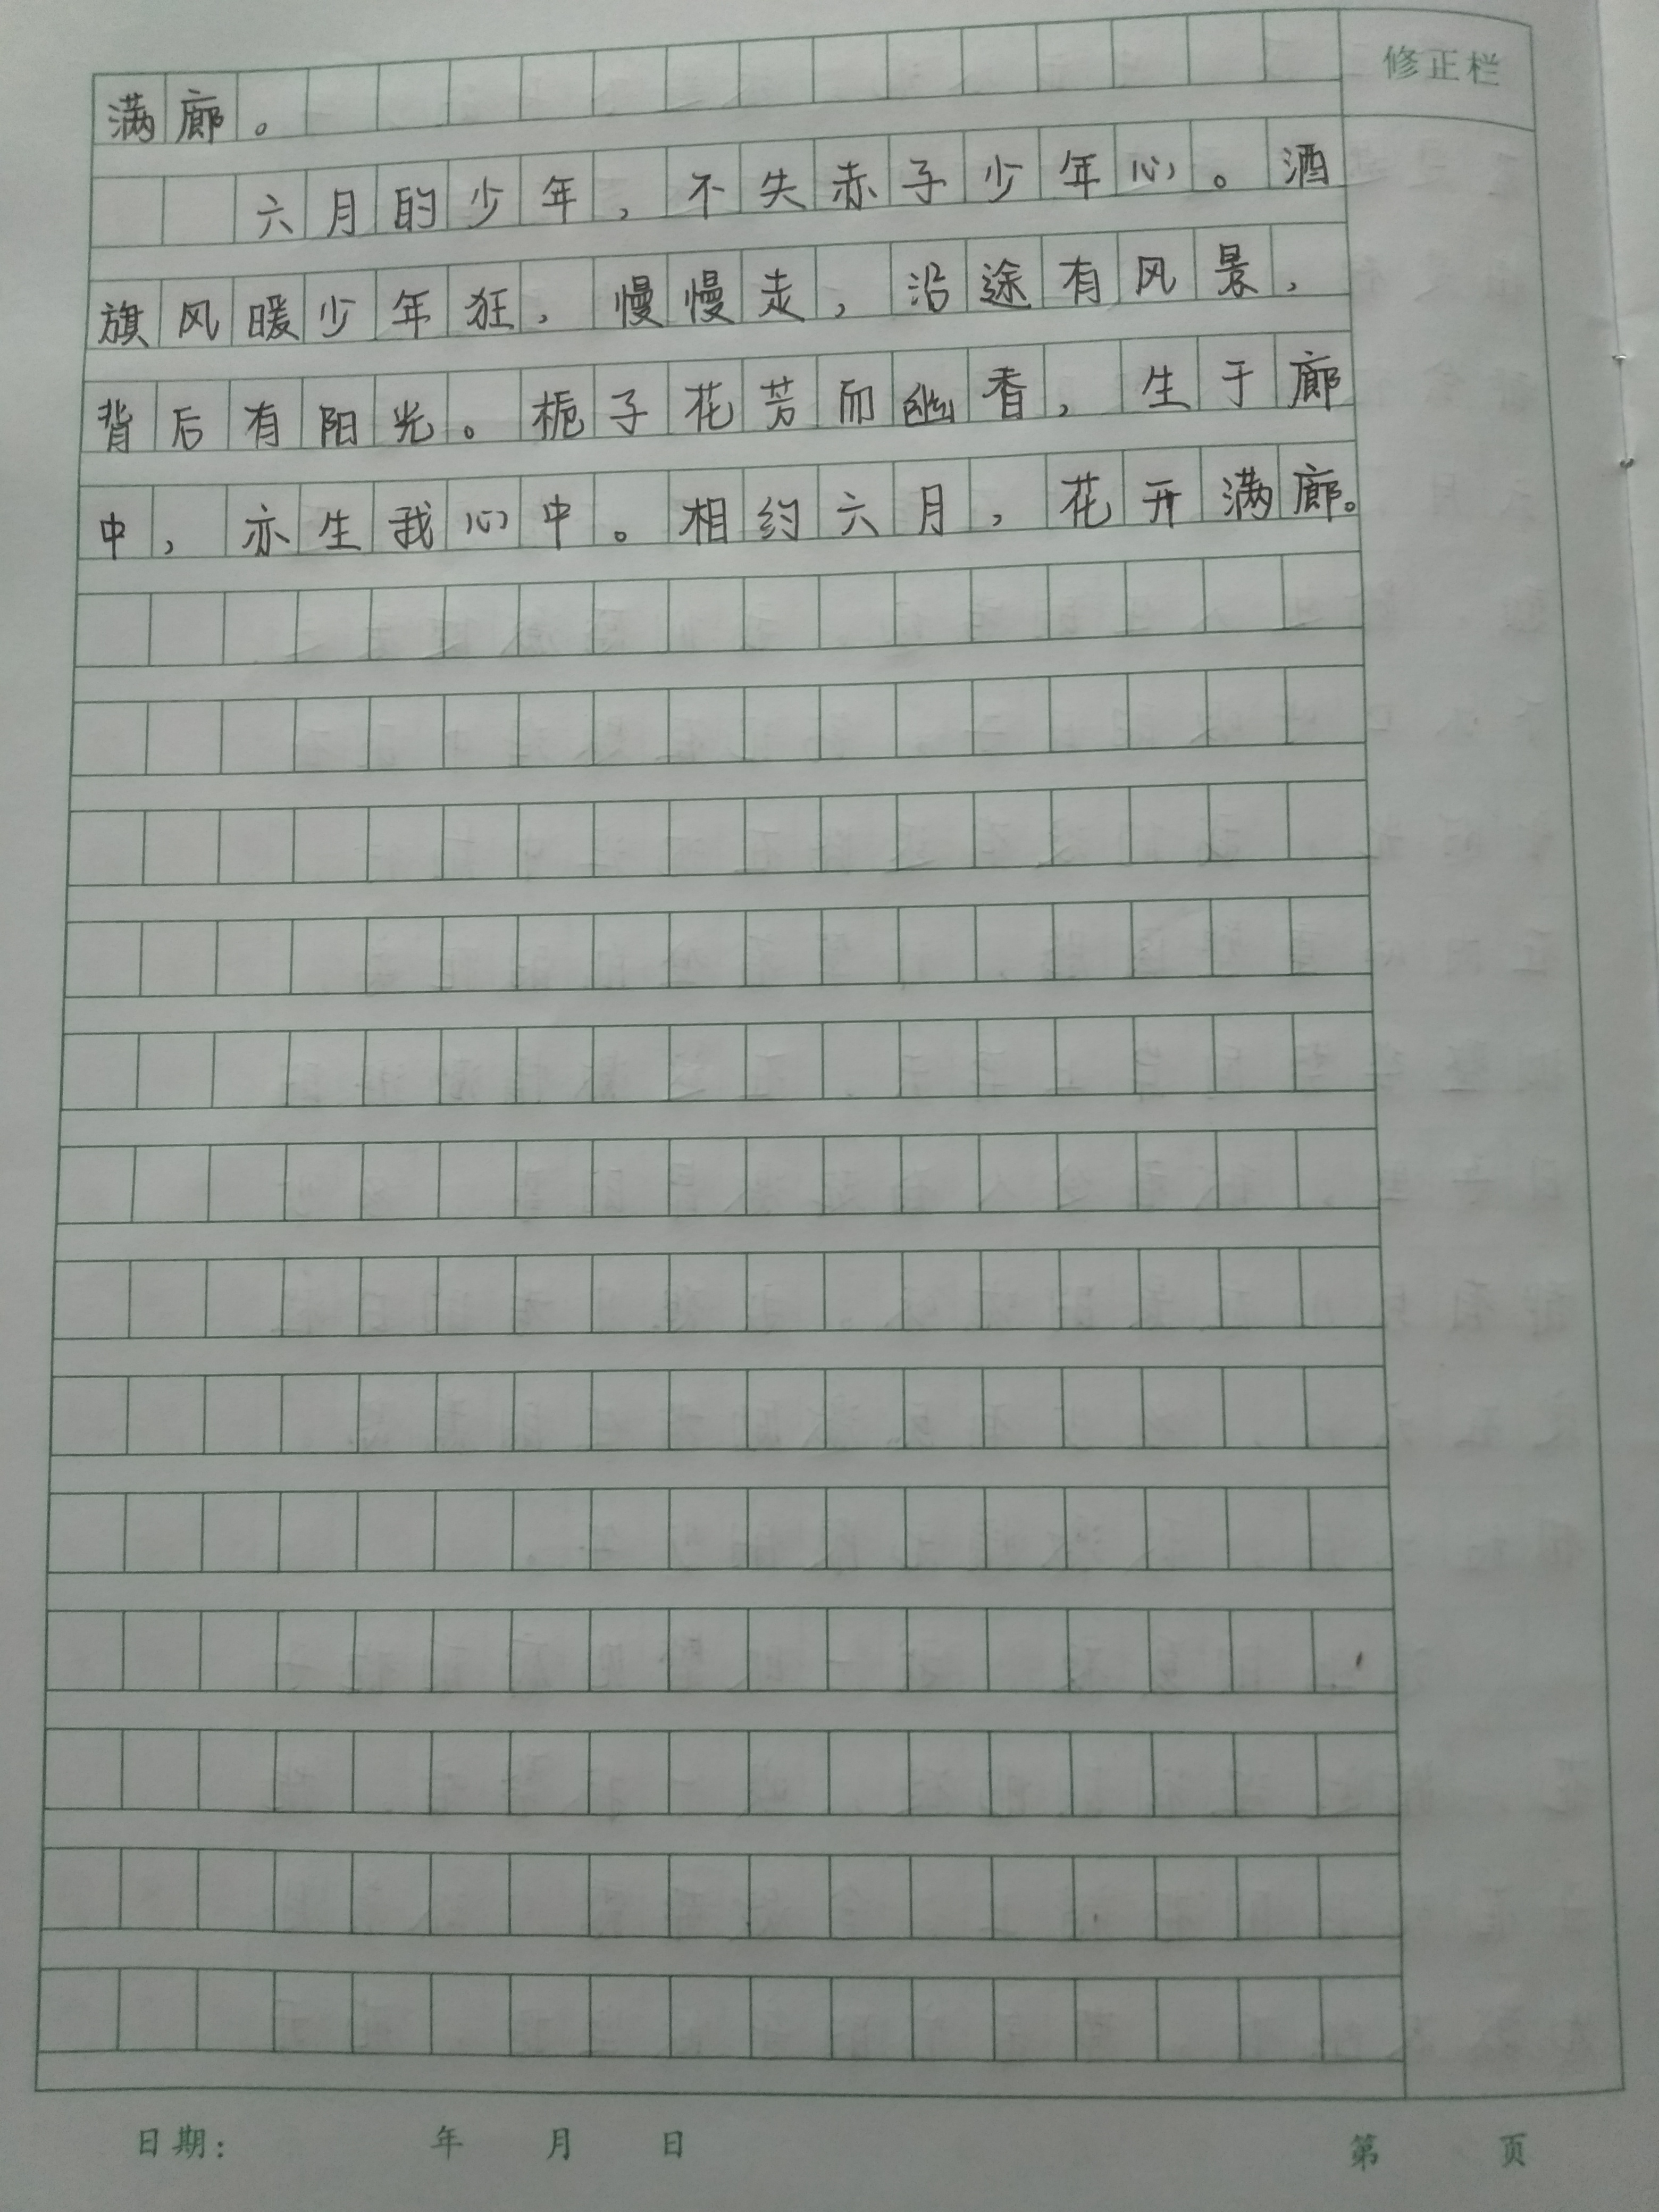 修正栏
满廊。
六月的少年，不失赤子少年心。酒
旗风暖少年狂，慢慢走，沿途有风景，
背后有阳光。栀子花芳而幽香，生于廊
中，亦生我心中。相约六月，花开满廊。
日期： 年 月 日
第 页